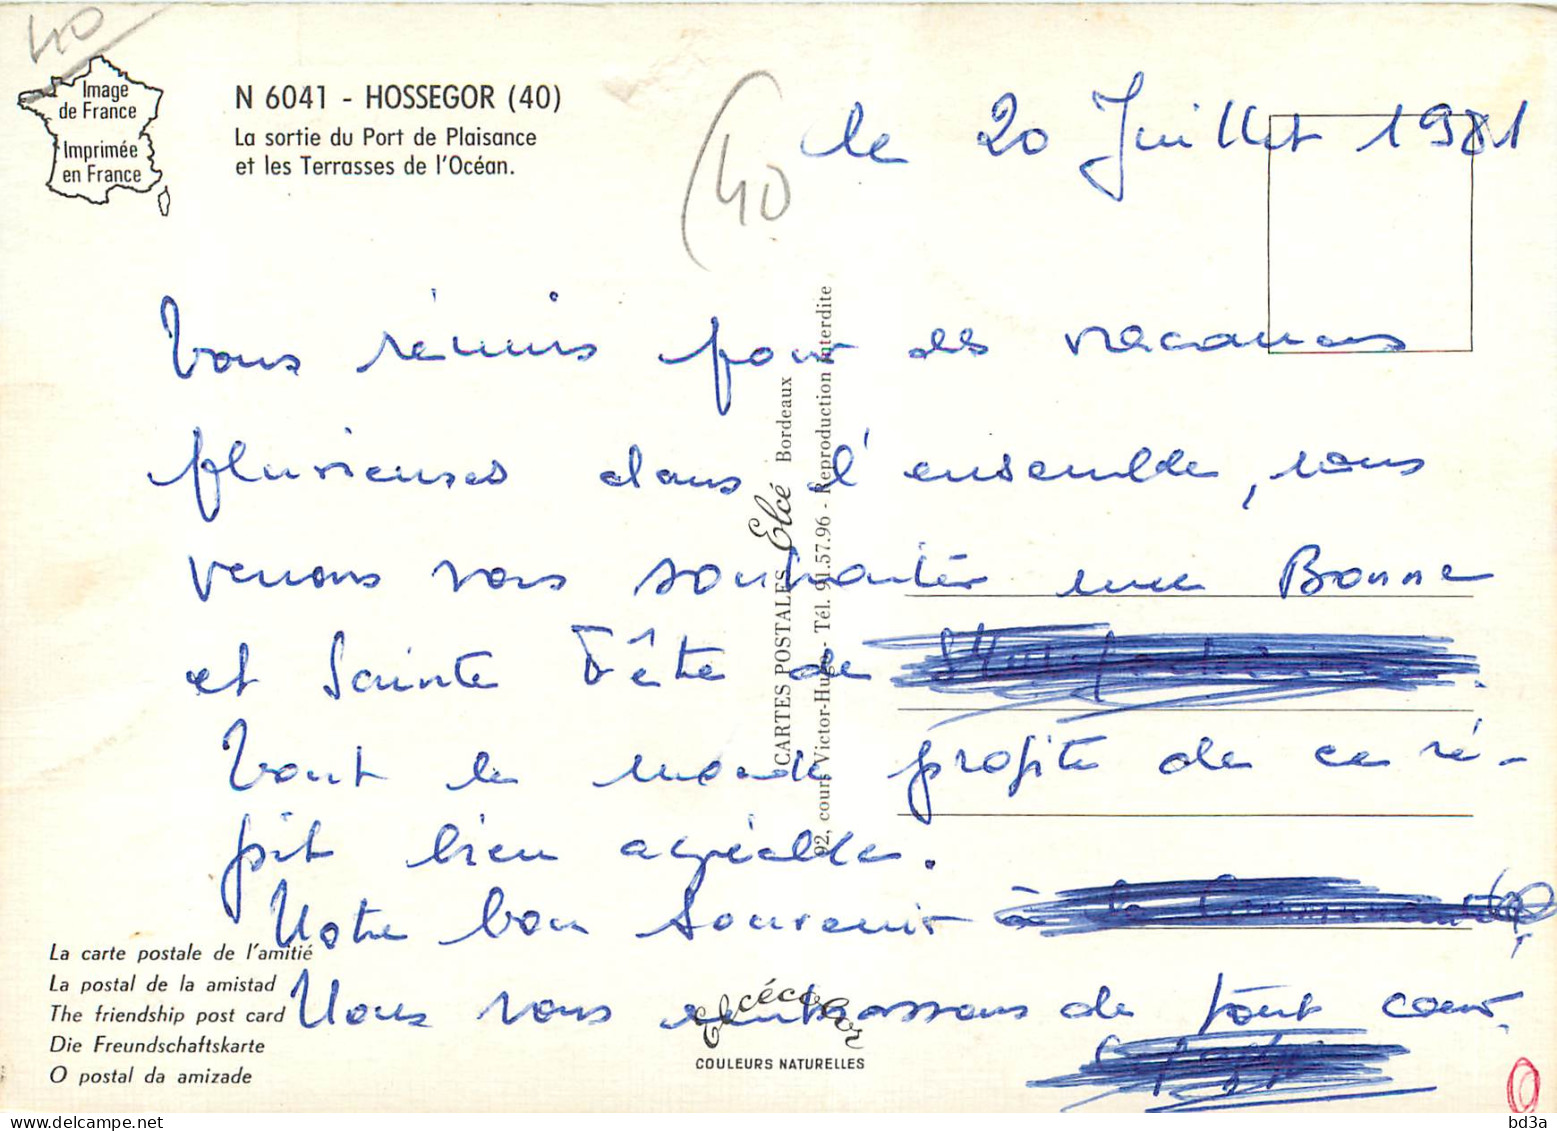 40
Image
de France
Imprimée
en France
N 6041 - HOSSEGOR (40)
La sortie du Port de Plaisance
et les Terrasses de l'Océan.
(40
le 20 Juillet 1981
Tous réunis pour des vacances
pluvieuses dans l'ensemble, nous
venons vous souhaiter une Bonne
et Sainte Fête de
Tout le monde profite de ce ré-
pit bien agréable.
Notre bon souvenir à la Communauté
Nous vous embrassons de tout coeur
CARTES POSTALES Elcé Bordeaux
92, cours Victor-Hugo - Tél. 91.57.96 - Reproduction interdite
La carte postale de l'amitié
La postal de la amistad
The friendship post card
Die Freundschaftskarte
O postal da amizade
Elcécolor
COULEURS NATURELLES
bd3a